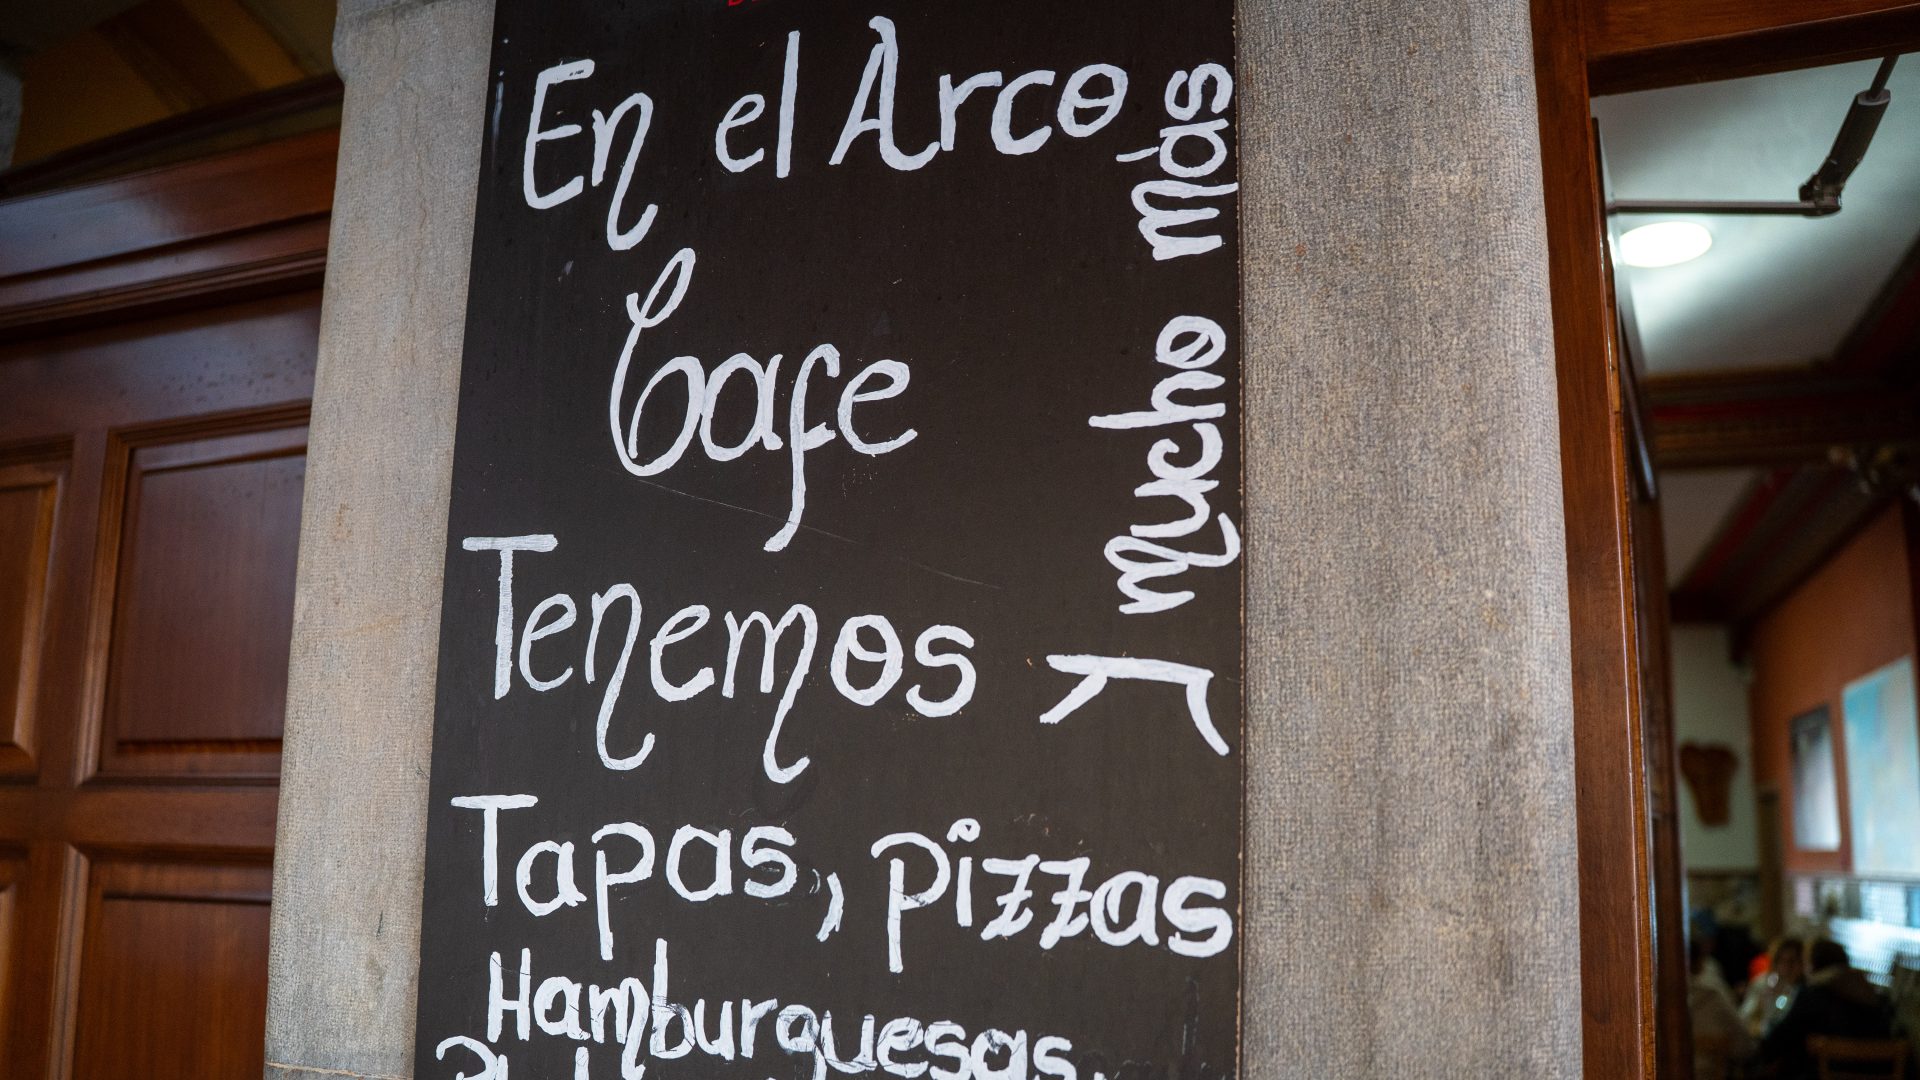 En el Arco
Cafe
Tenemos
Tapas, pizzas
Hamburguesas,
Y mucho más